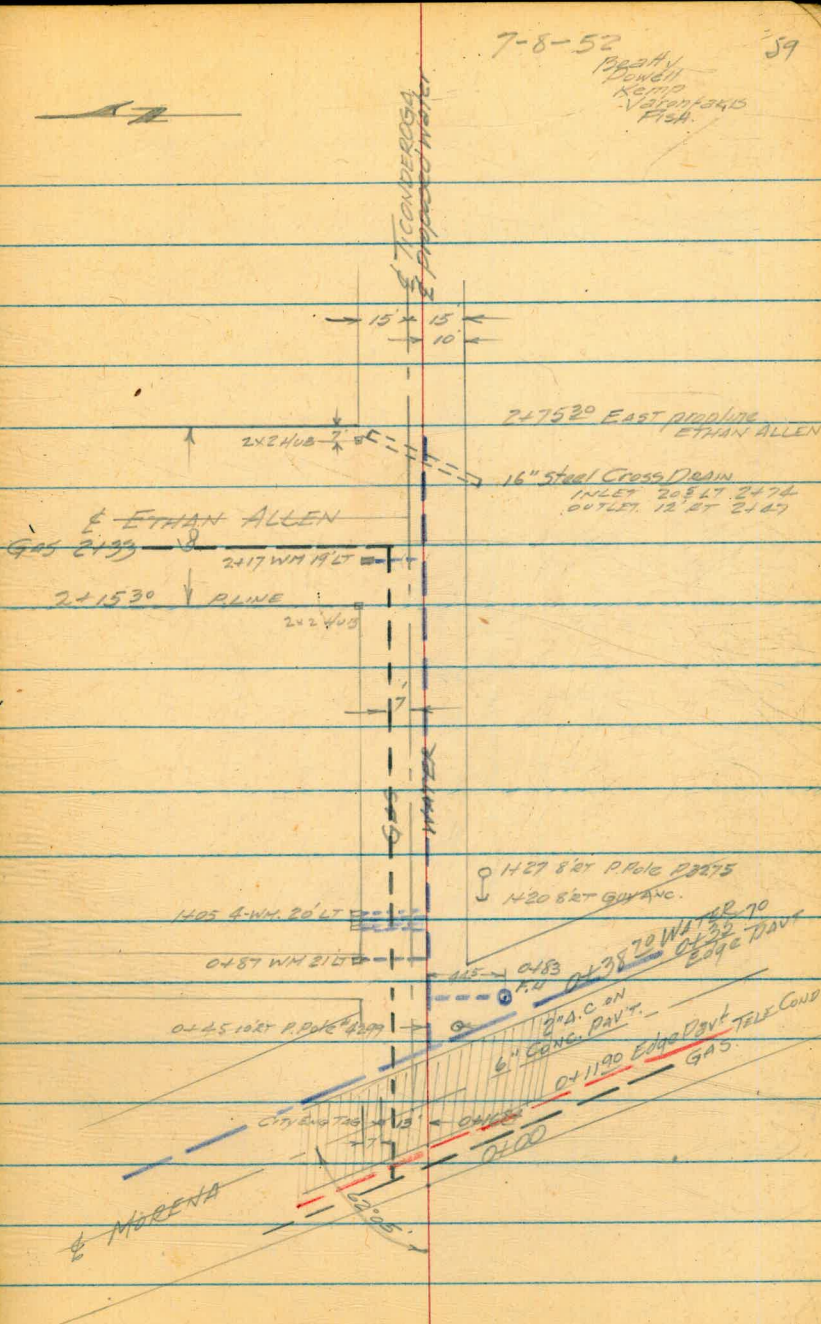 7-8-52
59
Beatty
Powell
Kemp
Varonfakis
℄ TICONDEROGA
℄ Proposed Water
15' 15'
10'
2+75.30 EAST prop line
ETHAN ALLEN
2x2 HUB 7'
16" Steel Cross DRAIN
INLET 20.5 LT 2+74
OUTLET 12' RT 2+67
℄ ETHAN ALLEN
GAS 2+33
8
2+17 WM 19' LT
2+15.30 P. LINE
2x2 HUB
7'
GAS
WATER
1+27 8' RT P. Pole P3275
1+20 8' RT GUY ANC.
1+05 4-WM. 20' LT
0+87 WM 21' LT
44.5
0+83
F.H
0+38.70 WATER
0+32.70
Edge PAVT
0+45 10' RT P. Pole # 4299
2" A.C ON
6" CONC. PAV'T.
0+11.90 Edge Pav't
TELE COND
GAS.
13'
7'
0+00
62°05'
℄ MORENA